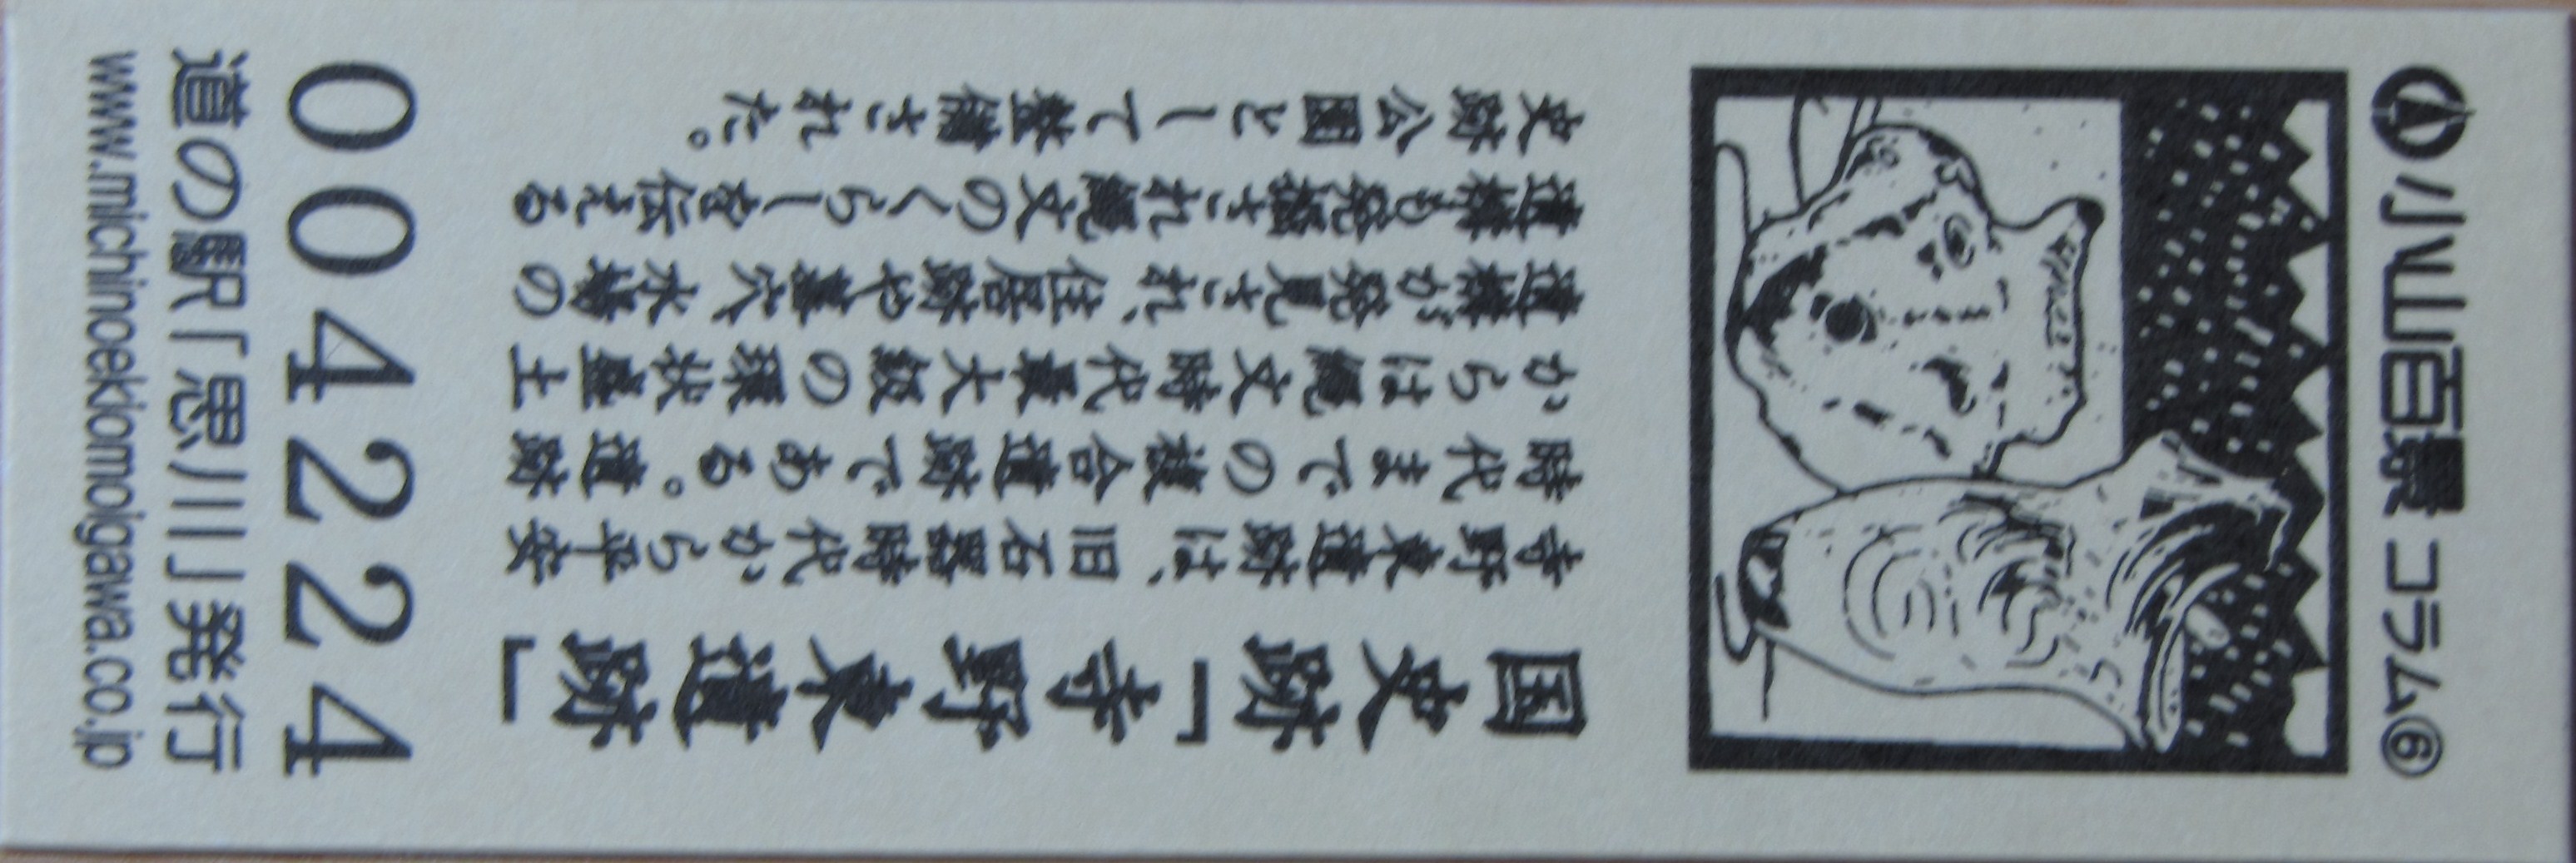 小山百景 コラム⑥
国史跡「寺野東遺跡」
寺野東遺跡は、旧石器時代から平安
時代までの複合遺跡である。遺跡
からは縄文時代最大級の環状盛土
遺構が発見され、住居跡や墓穴、水場の
遺構も発掘され縄文のくらしを伝える
史跡公園として整備された。
004224
道の駅「思川」発行
www.michinoekiomoigawa.co.jp